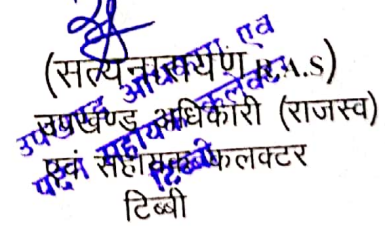 (सत्यनारायण R.A.S)
उपखण्ड अधिकारी (राजस्व)
एवं सहायक कलक्टर
टिब्बी
उपखण्ड अधिकारी एवं
पदेन सहायक कलेक्टर
टिब्बी